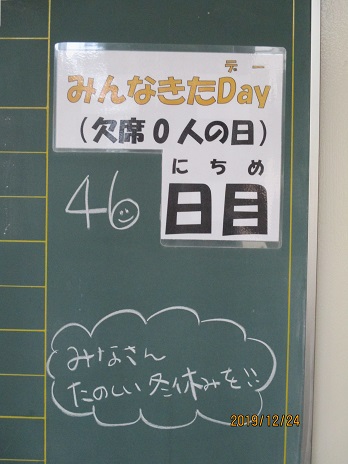 デー
みんなきたDay
(欠席0人の日)
にちめ
46日目
みなさん
たのしい冬休みを!!
2019/12/24